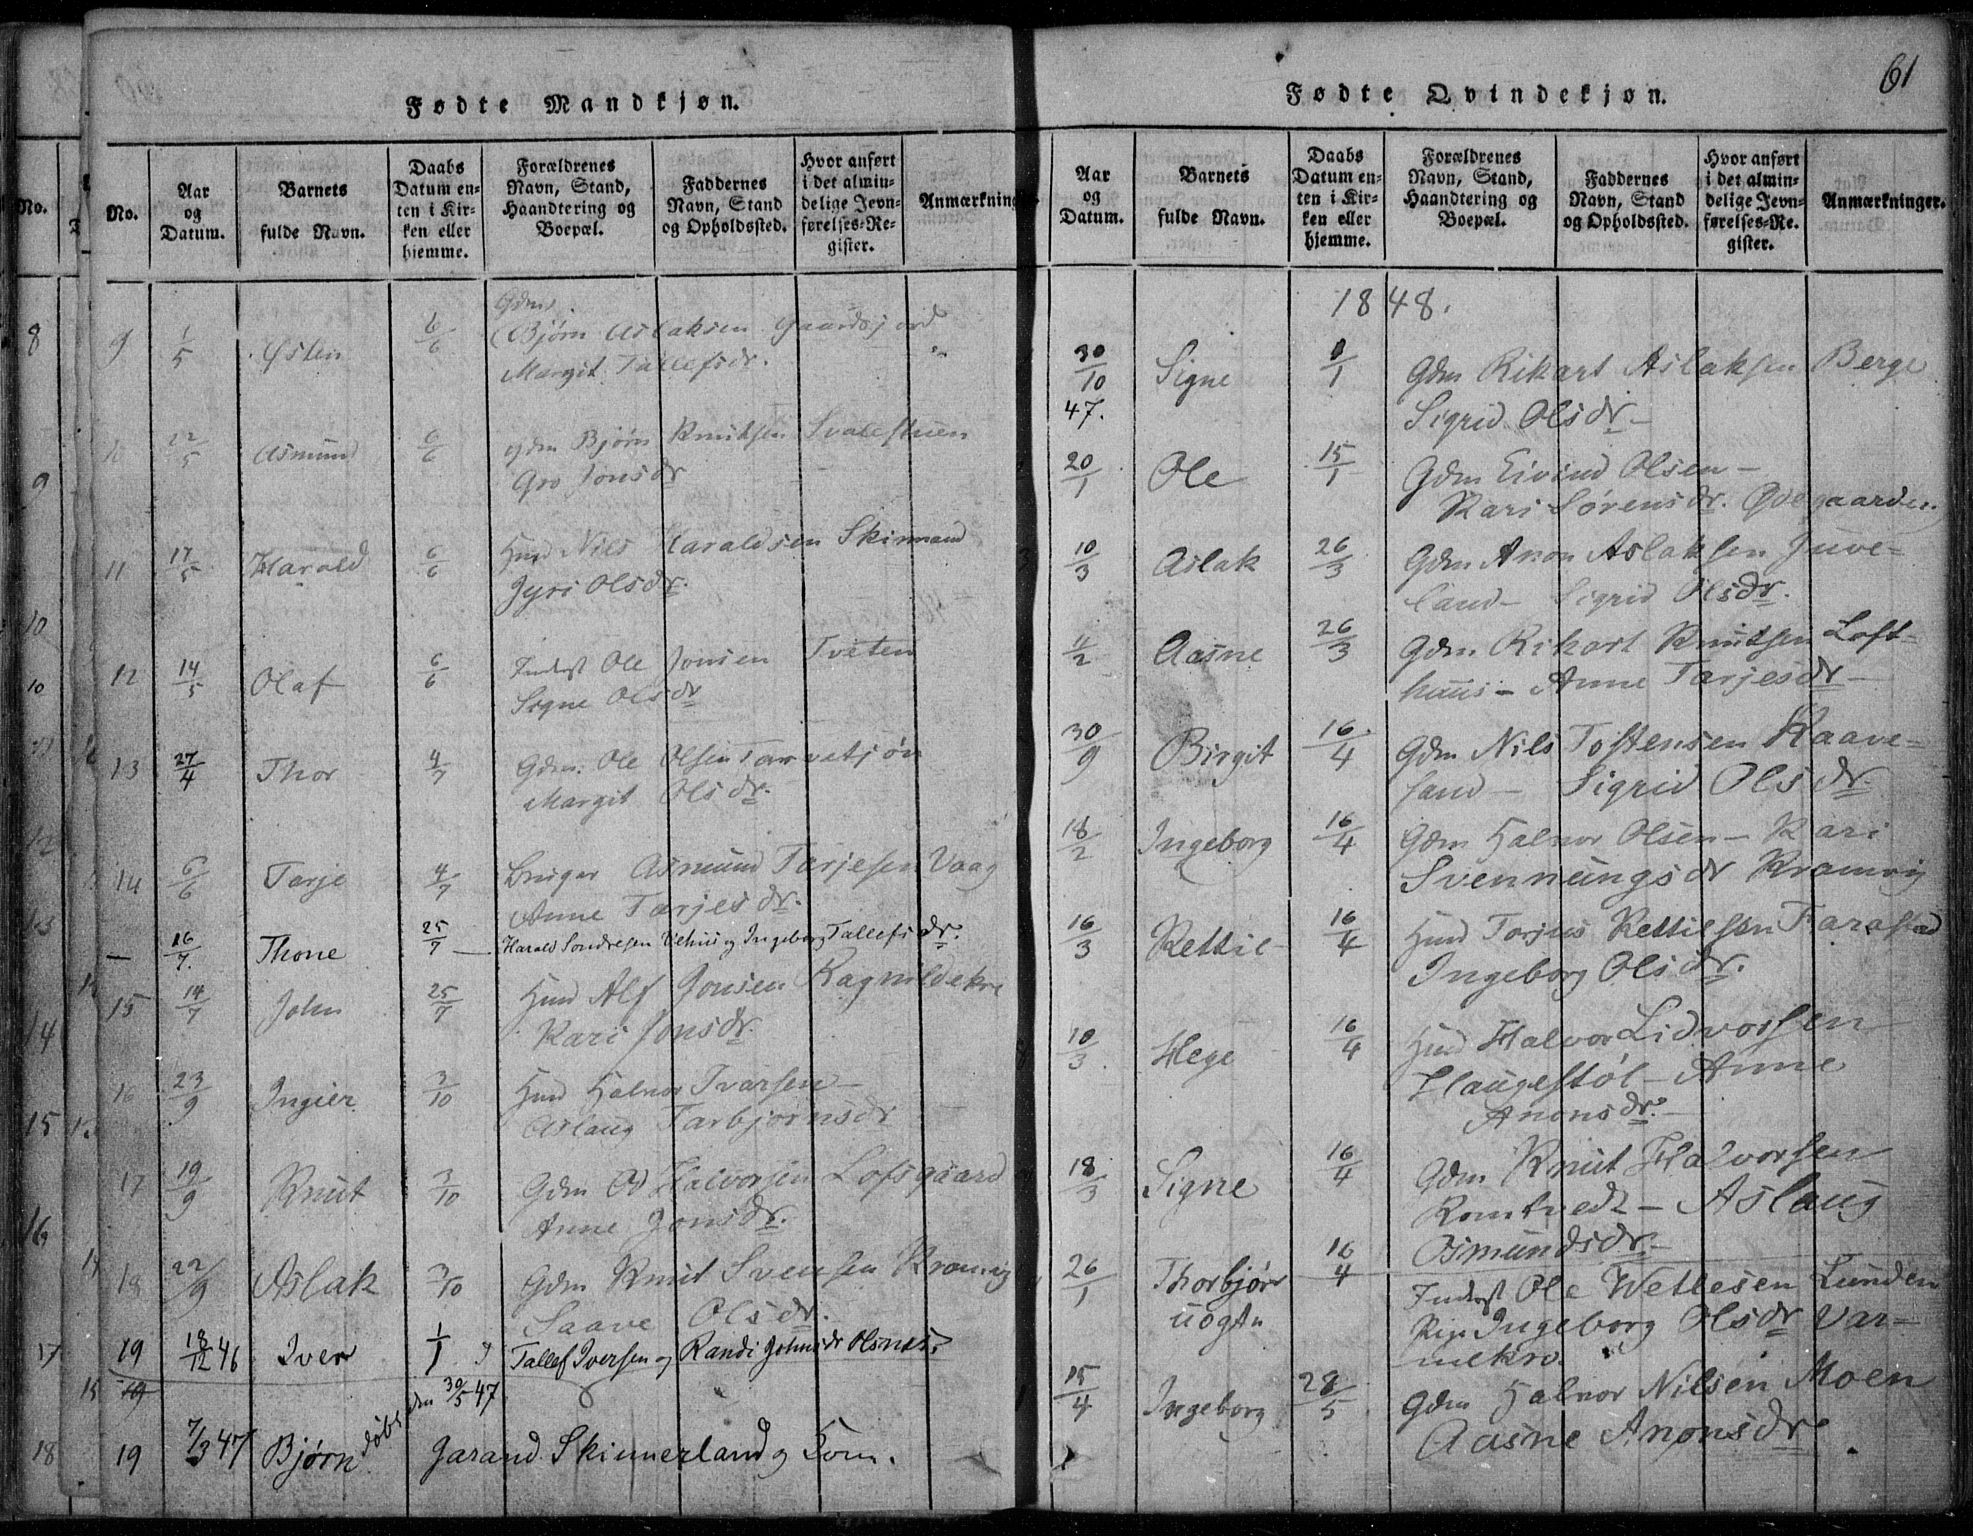 Fødte Mandkjøn.
No.
Aar og Datum.
Barnets fulde Navn.
Daabs Datum enten i Kirken eller hjemme.
Forældrenes Navn, Stand, Haandtering og Boepæl.
Faddernes Navn, Stand og Opholdssted.
Hvor anført i det almindelige Jevnførelses-Register.
Anmærkning
9 1/5 Østen 6/6 Gdm. Bjørn Aslaksen Gaardsjord
Margit Tallefsdr.
10 22/5 Asmund 6/6 Gdm Bjørn Knutsen Svalestuen
Gro Jonsdr
11 17/5 Harald 6/6 Hmd Nils Haraldsen Skinnand
Jyri Olsdr.
12 14/5 Olaf 6/6 Inderst Ole Jonsen Tveten
Signe Olsdr
13 27/4 Thor 4/7 Gdm. Ole Olsen Tarvetjøn
Margit Olsdr.
14 6/6 Tarje 4/7 Bruger Asmund Tarjesen Vaag
Anne Tarjesdr.
— 16/7. Thone 25/7 — Harald Sondresen Vehus og Ingeborg Tallefsdr.
15 14/7 John 25/7 Hmd Alf Jonsen Ragnildekre
Kari Jonsdr.
16 23/9 Ingier 3/10 Hmd Halvor Ivarsen —
Aslaug Tarbjørnsdr
17 19/9 Knut 3/10 Gdm Od Halvorsen Lofsgaard
Anne Jonsdr.
18 22/9 Aslak 3/10 Gdm Knut Svensen Kromvig
Saave Olsdr.
19 18/12 46 Iver 1/1 Tallef Iversen og Randi Johnsdr Olsnes.
19
19 7/3 47 Bjørn døbt den 30/5 47 Garand Skinnerland og Tom.
Fødte Qvindekjøn.
61
Aar og Datum.
Barnets fulde Navn.
Daabs Datum enten i Kirken eller hjemme.
Forældrenes Navn, Stand, Haandtering og Boepæl.
Faddernes Navn, Stand og Opholdssted.
Hvor anført i det almindelige Jevnførelses-Register.
Anmærkninger.
1848.
30/10 47. Signe 1/1 Gdm Rikart Aslaksen Berge
Sigrid Olsdr —
20/1 Ole 15/1 Gdm Eivind Olsen —
Kari Sørensdr. Ødegaarden
10/3 Aslak 26/3 Gdm Anon Aslaksen Juve=
land — Sigrid Olsdr.
11/2 Aasne 26/3 Gdm Rikart Knutsen Loft=
huus — Anne Tarjesdr —
30/9 Birgit 16/4 Gdm Nils Tostensen Kaave=
land — Sigrid Olsdr
18/2 Ingeborg 16/4 Gdm Halvor Olsen — Kari
Svennungsdr Kromvig
16/3 Kettil 16/4 Hmd Torjus Kettilsen Farastad
Ingeborg Olsdr.
10/3. Hege 16/4 Hmd Halvor Lidvorsen
Haugestøl — Anne
Anonsdr. —
18/3 Signe 16/4 Gdm Knut Halvorsen
Romtvedt — Aslaug
Osmundsdr —
26/1 Thorbjør uægtn 16/4 Inderst Ole Wetlesen Lunden
Pige Ingeborg Olsdr Var=
mekro.
15/4 Ingeborg 28/5 Gdm Halvor Nilsen Moen
Aasne Anonsdr